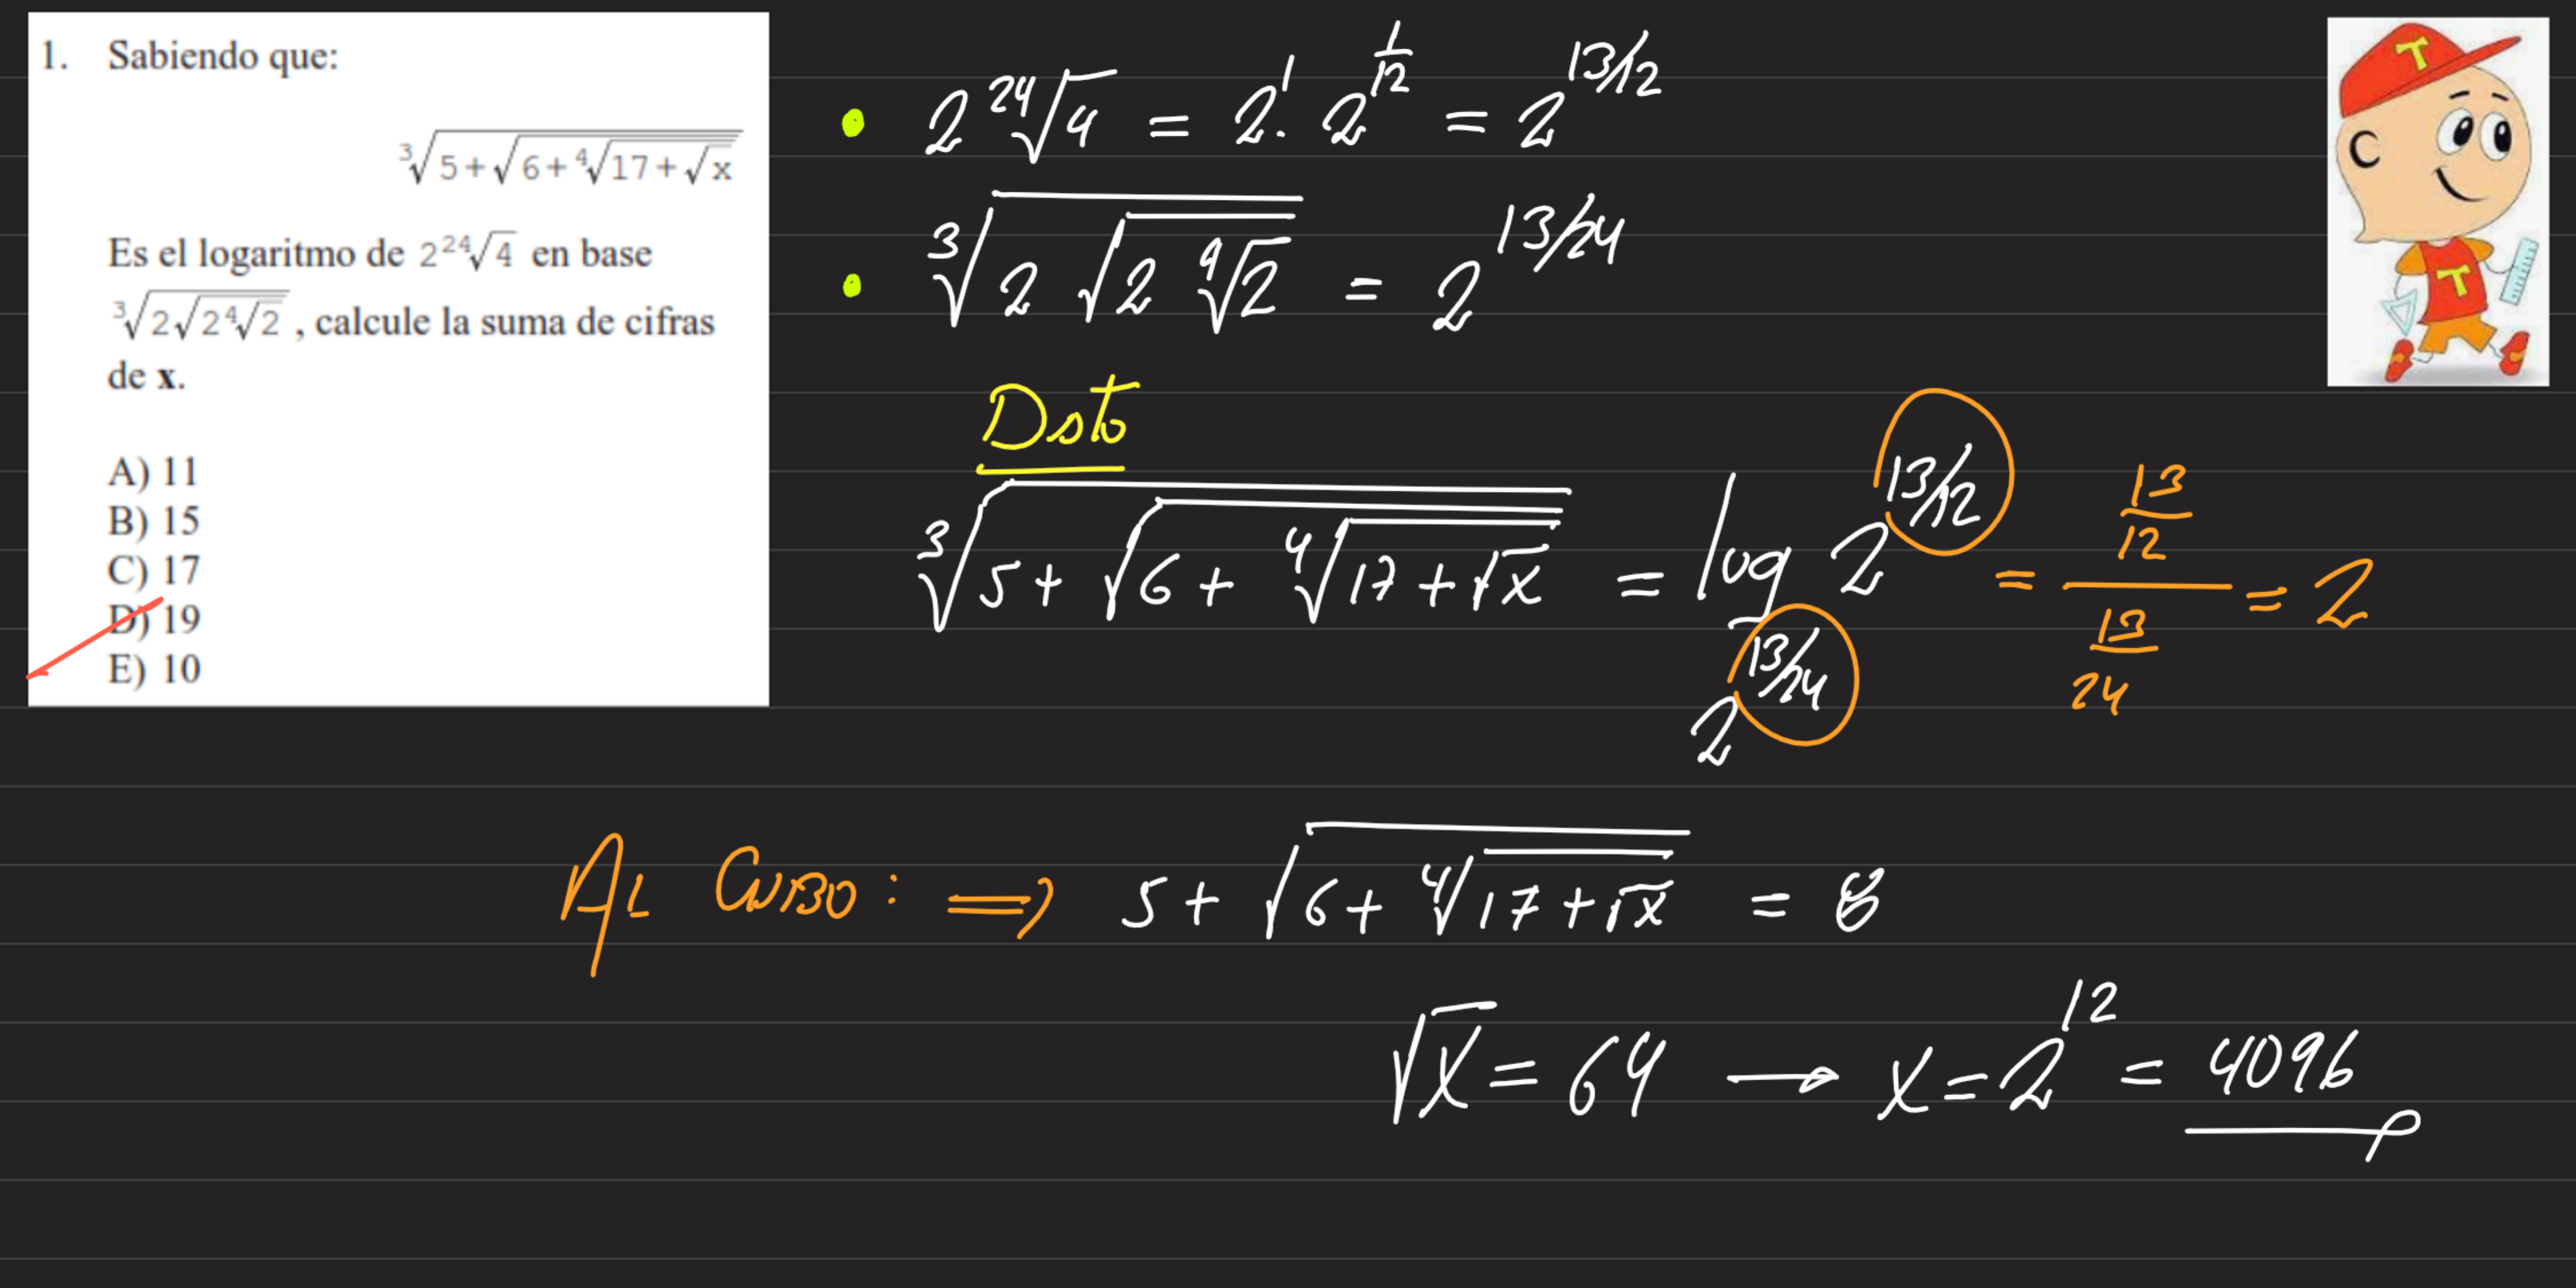 1. Sabiendo que:
∛(5+√(6+∜(17+√x)))
Es el logaritmo de 2 ²⁴√4 en base
∛(2√(2∜2)) , calcule la suma de cifras
de x.
A) 11
B) 15
C) 17
D) 19
E) 10
• 2 ²⁴√4 = 2¹·2^(1/12) = 2^(13/12)
• ∛(2√(2∜2)) = 2^(13/24)
Dsto
∛(5+√(6+∜(17+√x))) = log_(2^(13/24)) 2^(13/12) = (13/12)/(13/24) = 2
AL CUBO: ⟹ 5+√(6+∜(17+√x)) = 8
√x = 64 → x = 2¹² = 4096
T
C
T